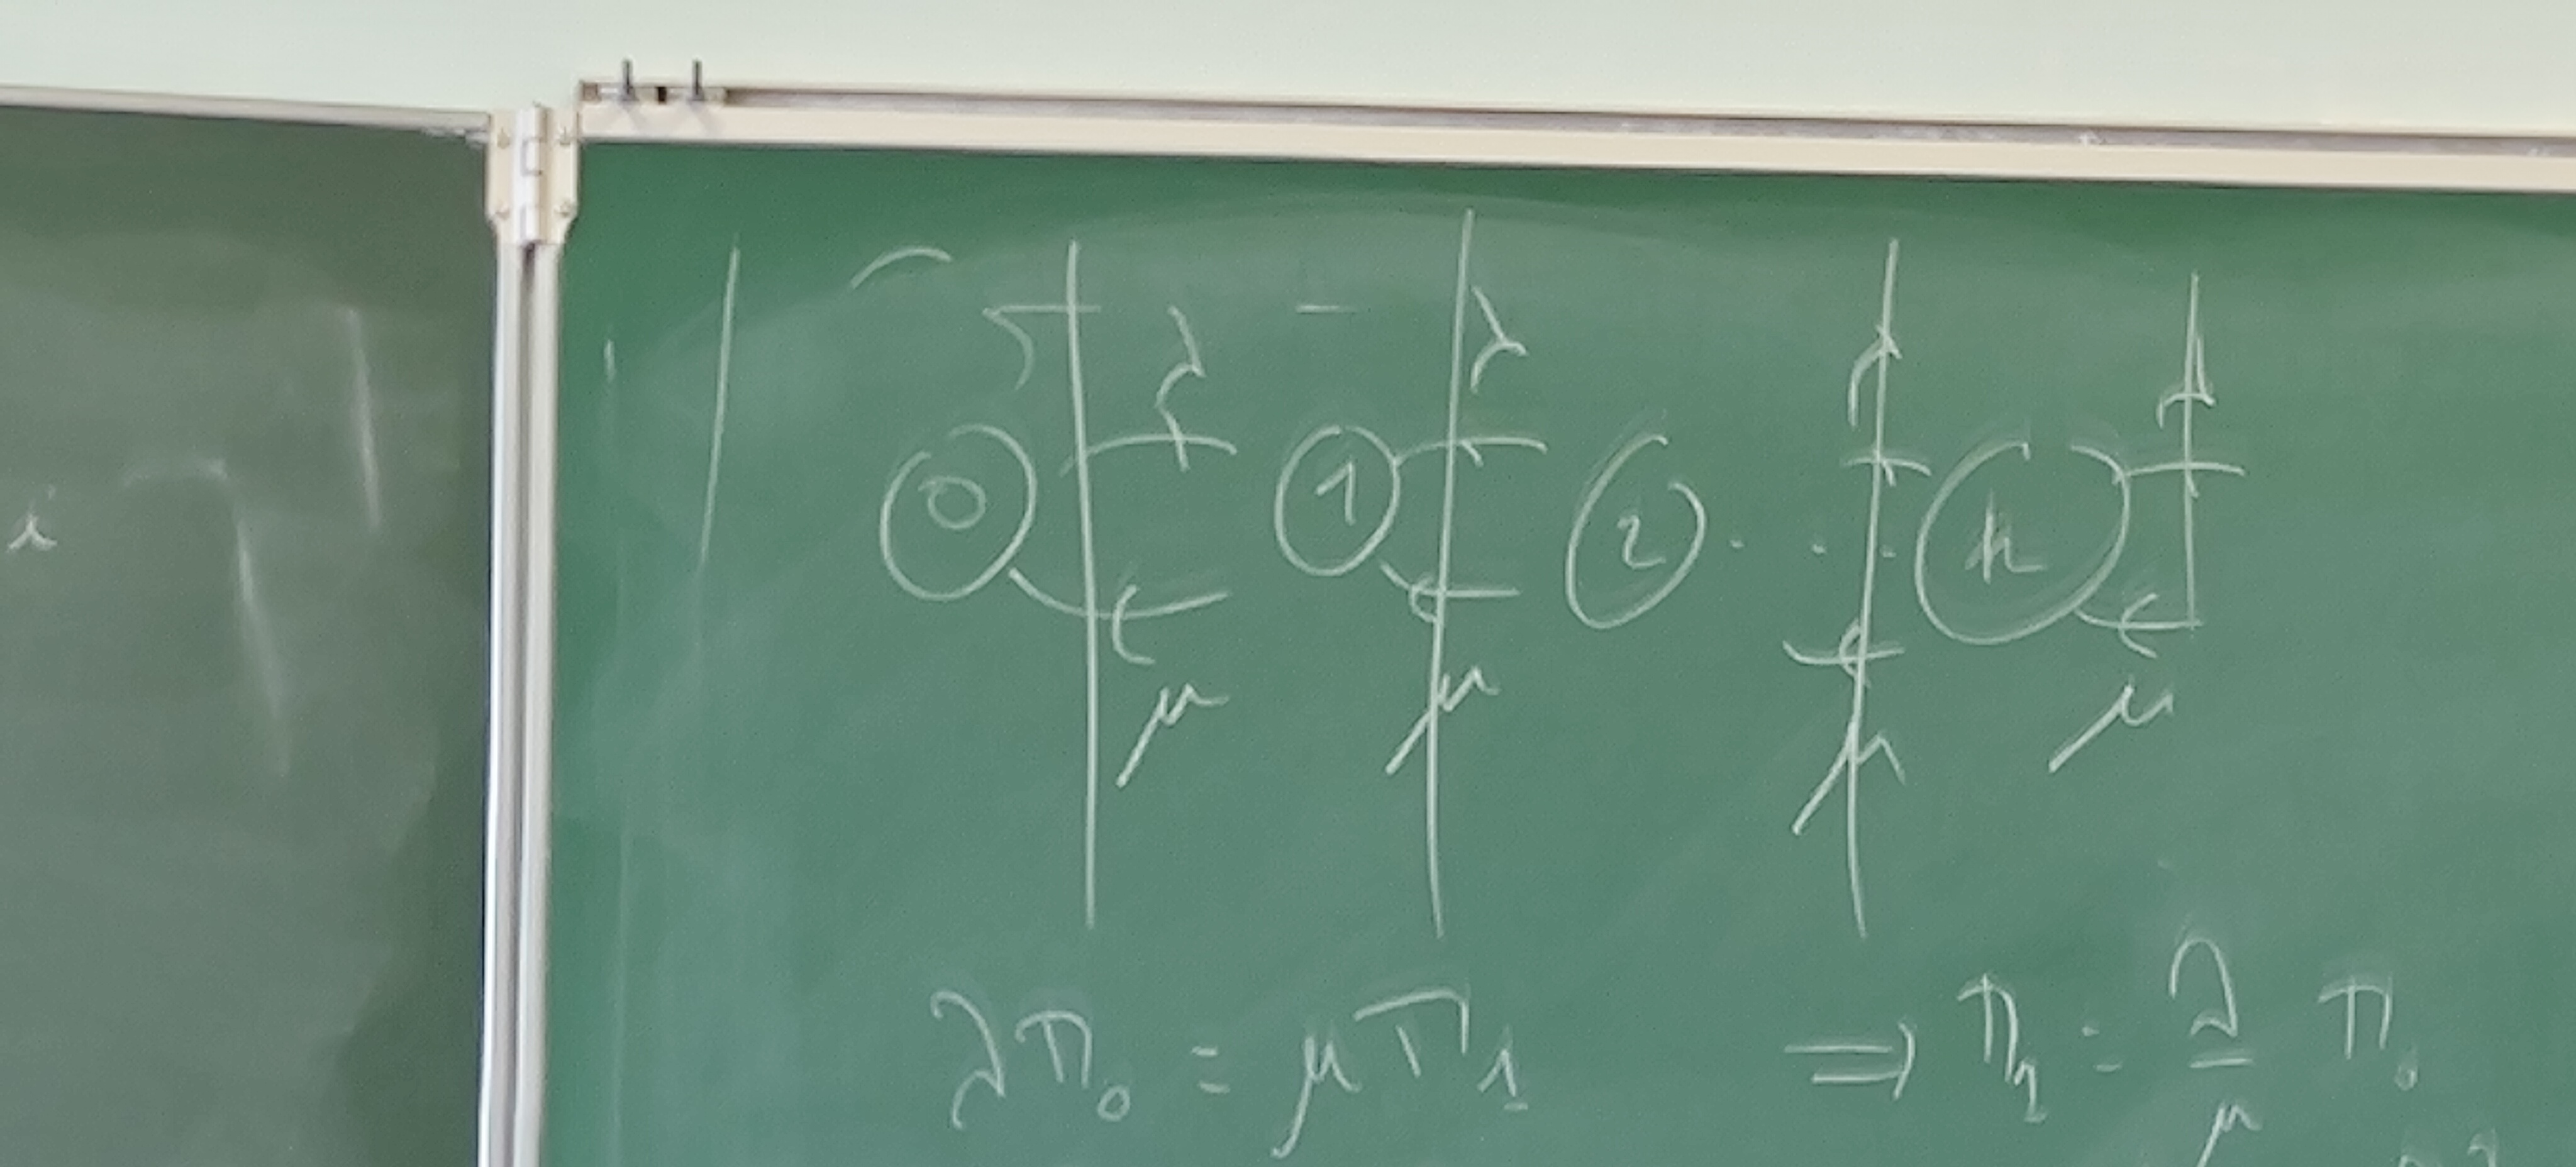 i
λ λ λ λ
0 1 2 . . . n
μ μ μ μ
λπ₀ = μπ₁ ⇒ π₁ = λ/μ π₀